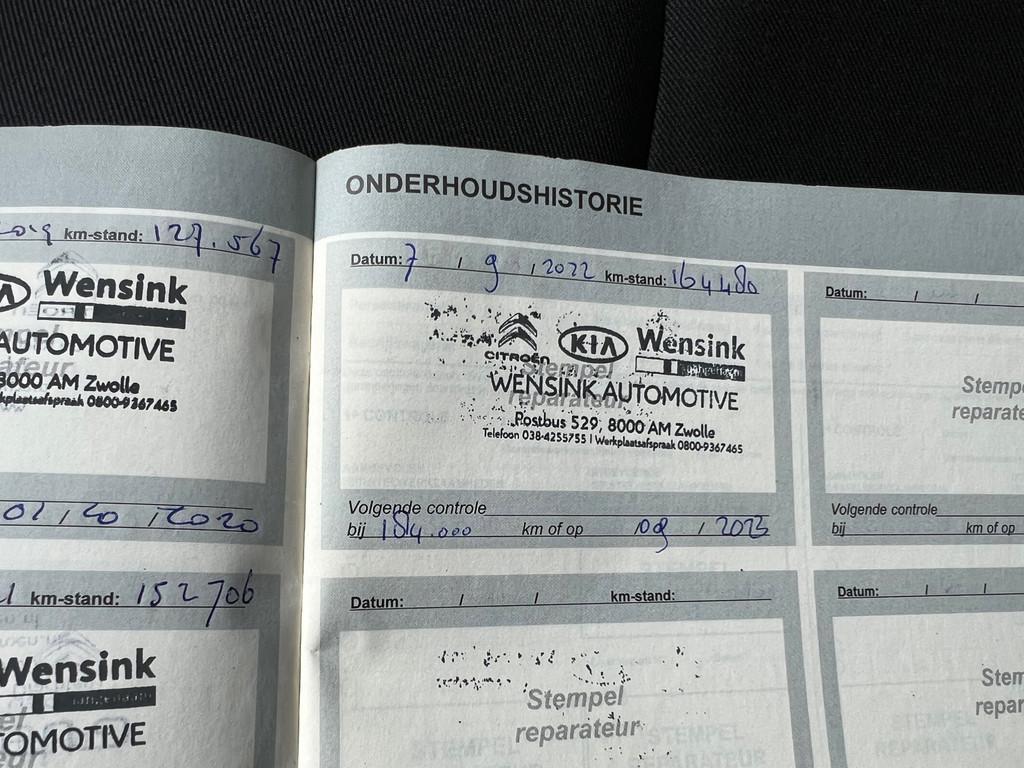 km-stand: 127.567
Wensink
AUTOMOTIVE
8000 AM Zwolle
0800-9367465
2020
km-stand: 152706
Wensink
ONDERHOUDSHISTORIE
Datum: 7 / 9 / 2022 km-stand: 164480
CITROËN KIA Wensink
Stempel
WENSINK AUTOMOTIVE
reparateur
Postbus 529, 8000 AM Zwolle
Telefoon 038-4255755 | Werkplaatsafspraak 0800-9367465
Volgende controle
bij 184.000 km of op 09 / 2023
Datum: / / km-stand:
Stempel
reparateur
Datum: / /
Volgende controle
bij km of op
Datum: / /